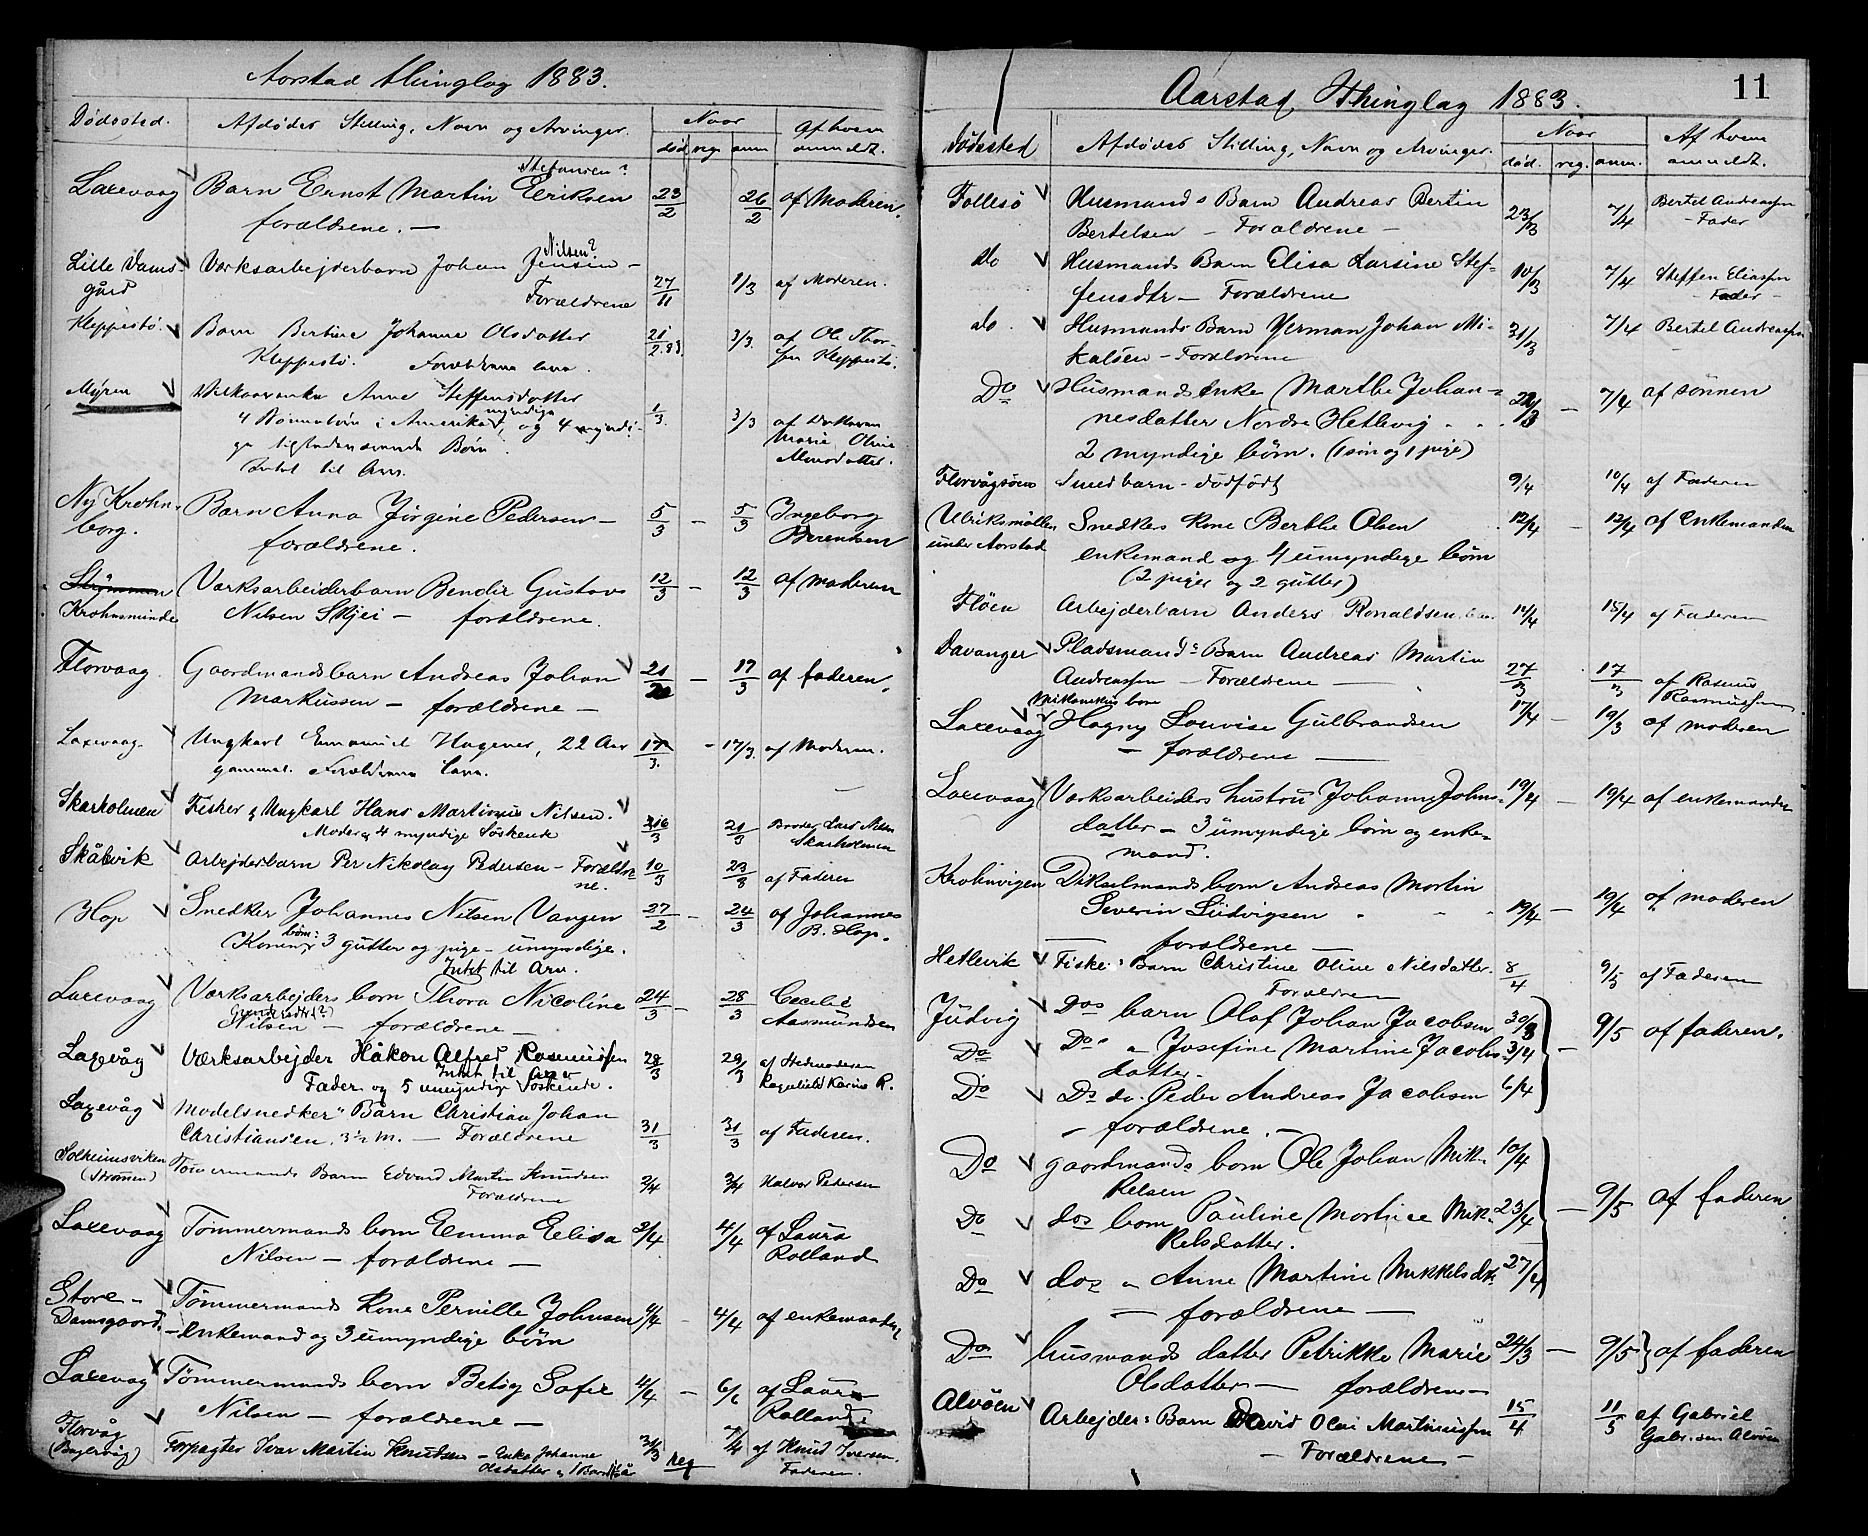 Aarstad thinglag 1883.
Dødssted. Afdødes Stilling, Navn og Arvinger. Naar Af hvem
død reg. anm anmeldt.
Stefansen?
Laxevaag Barn Ernst Martin Eriksen 23/2 26/2 af Moderen.
forældrene. —
Nilsen?
Lille Dams- Værksarbejderbarn Johan Jensen —
gård Forældrene 27/11 1/3 af Moderen.
Kleppestø. Barn Bertine Johanne Olsdatter 21/2.83 3/3. af Ole Thor-
Kleppestø. Forældrene Leve. sen Kleppestø.
Myren Vilkaarsenke Anne Steffensdatter
4 Børnebørn i Amerika, myndige og 4 myndi- 1/3. 3/3 af Datteren
ge tilstedeværende Børn. Marie Oline
Intet til Arv. Monsdatter
Ny Krohn- Barn Anna Jørgine Pedersen — 5/3 — 5/3 Ingeborg
borg. forældrene. Berentsen
Strømmen Værksarbeiderbarn Bendix Gustavs 12/3 — 12/3 af moderen
Krohnsminde Nilsen Skjei — forældrene.
Florvaag. Gaardmandsbarn Andreas Johan 21/2 — 17/3 af faderen.
Markussen — forældrene —
Laxevaag. Ungkarl Emanuel Hagener, 22 Aar 17/3. - 17/3. af Moderen.
gammel. Forældrene Leve.
Skarholmen Fisker & Ungkarl Hans Martinus Nilsen. —
Moder & 4 myndige Søskende 16/3 21/3 Broder Lars Nilsen
Skarholmen
Skålevik Arbejderbarn Per Nikolay Pedersen — Forældre- 10/3 23/3 af Fader
ne.
Hop Snedker Johannes Nilsen Vangen 27/2 — 24/3 af Johannes
Konen, børn: 3 gutter og pige — umyndige. B. Hop.
Intet til Arv.
Laxevaag Værksarbejders barn Thora Nicoline 24/3 — 28/3 Cecilie
Nilsen — forældrene — Aasmundsen
Laxevåg Værksarbejder Håkon Alfred Rasmussen 28/3 29/3 af Stedmoderen
Intet til Arv
Fader og 5 umyndige Søskende. Ragnhild Karine R.
Laxevåg Modelsnedkers Barn Christian Johan
Christiansen, 3½ M. — Forældrene 31/3 31/3 af Faderen.
Solheimsviken Tømmermands Barn Edvard Martin Knudsen
(Strømmen) Forældrene 2/4 3/4 Halvor Pedersen
Laxevaag Tømmermands barn Emma Elisa 2/4 4/4 af Laura
Nilsen — forældrene — Rolland
Store- Tømmermands Kone Pernille Johnsen 4/4 — 4/4 af enkemanden
Damsgaard. — enkemand og 3 umyndige børn
Laxevag Tømmermands barn Betsy Sofie 4/4 — 6/4 af Laura
Nilsen — forældrene — Rolland
Florvåg Forpagter Ivar Martin Knudsen — Enke Johanne 31/3 reg 7/4 af Knud Iversen.
Olsdatter & 1 Barn Faderen.
11
Aarstad Thinglag 1883.
Dødssted Afdødes Stilling, Navn og Arvinger. Naar Af hvem
død. reg. anm. anmeldt.
Follesø Husmands Barn Andreas Bertin 23/3 7/4 Bertel Andreassen
Bertelsen — Forældrene — - Fader
do Husmands Barn Elisa Larsine Stef- 10/3 7/4 Steffen Eliassen
fensdtr — Forældrene - Fader -
do. Husmands Barn Herman Johan Mi- 31/3 7/4 Bertel Andreassen
kalsen — Forældrene
Do Husmands Enke Marthe Johan- 22/3 — 7/4 af sønnen
nesdatter Nordre Hetlevig
2 myndige børn. (1 søn og 1 pige)
Florvågøen Smedbarn — dødfødt 9/4 10/4 af Faderen
Ulriksmøllen Snedkers Kone Berthe Olsen 12/4 — 12/4 af Enkemanden
under Aarstad enkemand og 4 umyndige børn
(2 piger og 2 gutter)
Fløen Arbejderbarn Anders Ronaldsen. 14/4 15/4 af Faderen
Davanger Pladsmands Barn Andreas Martin
Andreassen — Forældrene — 27/3 17/3 af Rasmus
Rasmussen
Mekanikus barn
Laxevaag Hagny Lovise Gulbrandsen 17/4 — 19/3 af moderen
— forældrene —
Laxevaag Værksarbeiders hustru Johanne Johns- 19/4 — 19/4 af enkemanden
datter — 3 umyndige børn og enke-
mand.
Krohnvigen Dikselmands barn Andreas Martin
Severin Ludvigsen 19/4 — 19/4 af moderen
— forældrene —
Hetlevik Fiskers Barn Christine Oline Nilsdatter 8/4 9/5 af Faderen
Forældren
Judvig Dos barn Olaf Johan Jacobsen 30/3
Do Dos " Josefine Martine Jacobs- 3/4 — 9/5 af faderen.
datter
Do Do do. Peder Andreas Jacobsen 6/4
— forældrene. —
Do gaardmands barn Ole Johan Mik- 10/4
kelsen
Do dos barn Pauline Martine Mik- 23/4 — 9/5 af faderen
kelsdatter.
Do dos " Anne Martine Mikkelsdtr. 27/4
— forældrene —
Do husmands datter Petrikke Marie 24/3 — 9/5 af faderen
Olsdatter — forældrene —
Alvøen Arbejders Barn David Olai Martinussen 15/4 11/5 af Gabriel
— Forældrene — Gabrielsen Alvøen